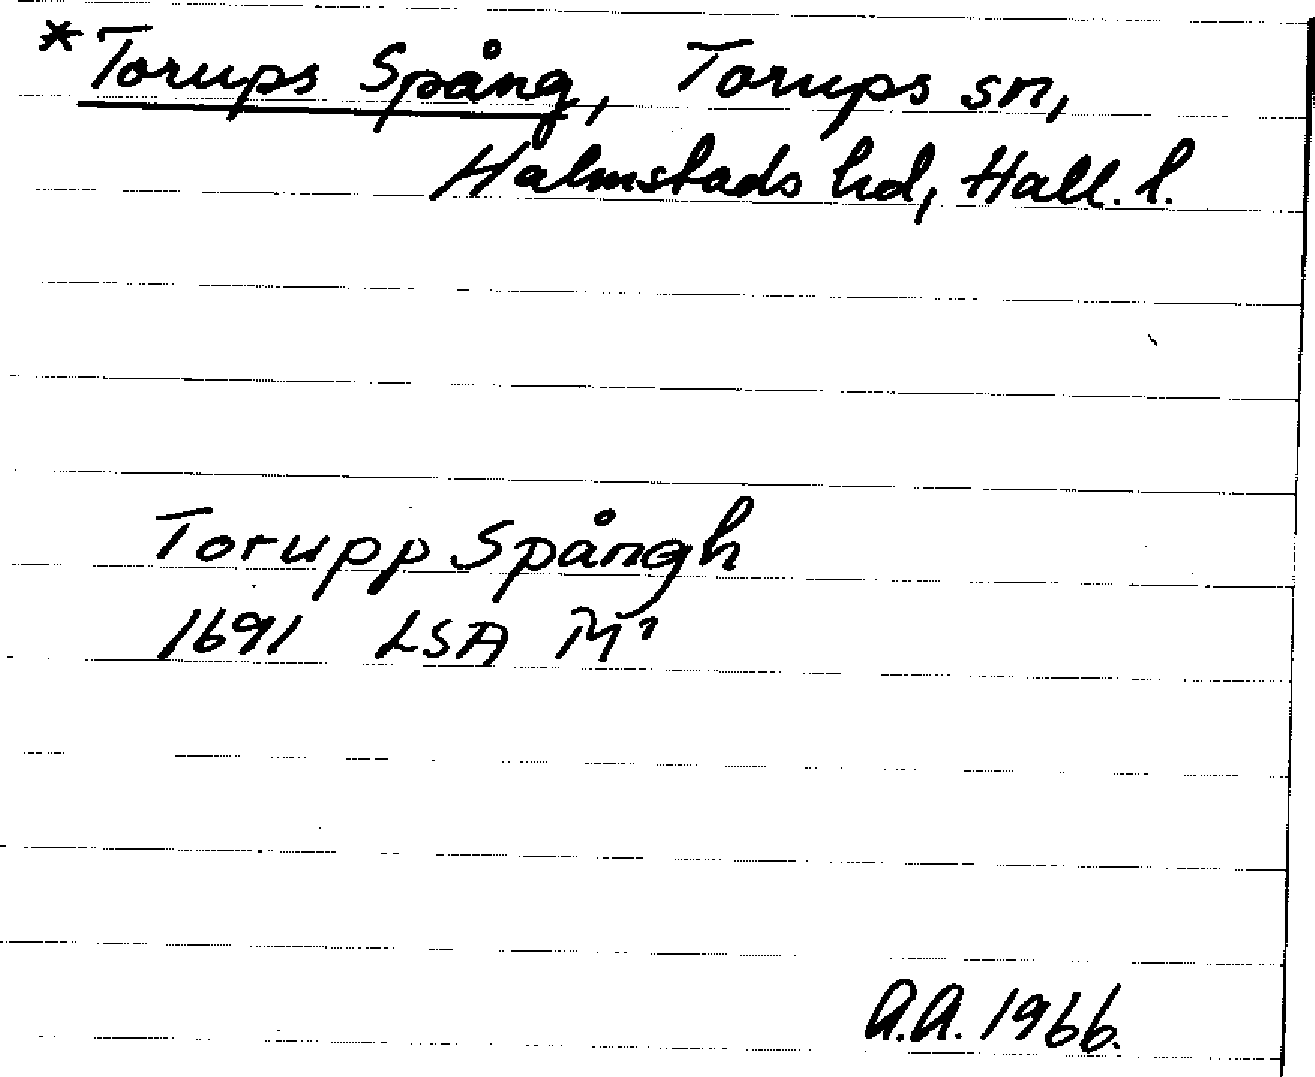 *Torups Spång, Torups sn,
Halmstads hd, Hall. l.
Torupp Spångh
1691 LSA M¹
A.A. 1966.